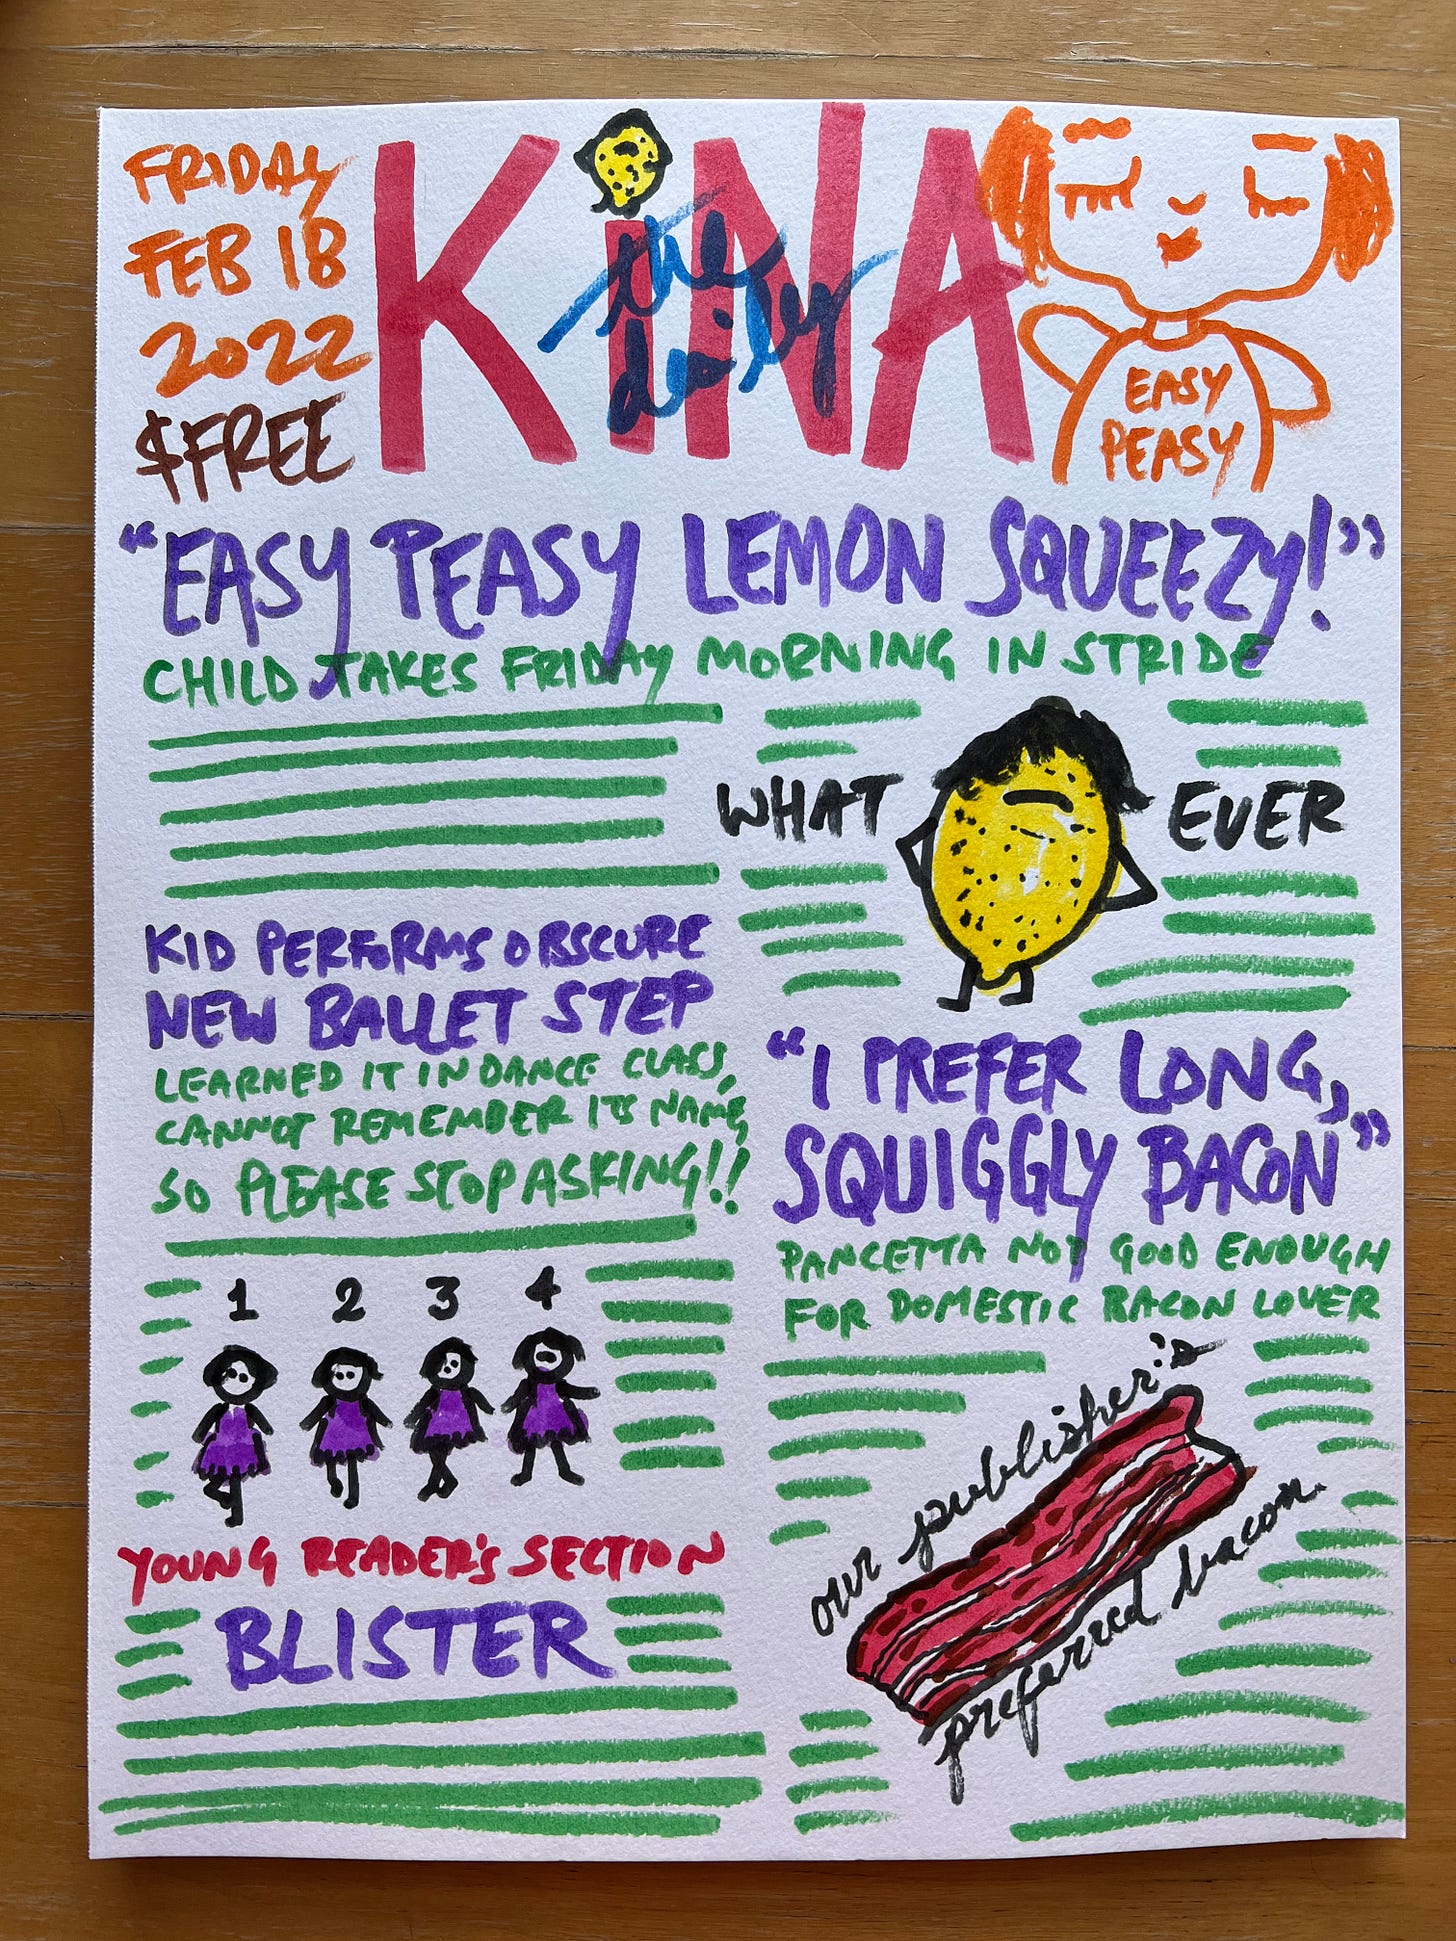 FRIDAY
FEB 18
2022
$FREE
KiNA
the
daily
EASY
PEASY
“EASY PEASY LEMON SQUEEZY!”
CHILD TAKES FRIDAY MORNING IN STRIDE
WHAT EVER
KID PERFORMS OBSCURE
NEW BALLET STEP
LEARNED IT IN DANCE CLASS,
CANNOT REMEMBER ITS NAME,
SO PLEASE STOP ASKING!!
1 2 3 4
“I PREFER LONG,
SQUIGGLY BACON”
PANCETTA NOT GOOD ENOUGH
FOR DOMESTIC BACON LOVER
our publisher's
preferred bacon.
YOUNG READER'S SECTION
BLISTER